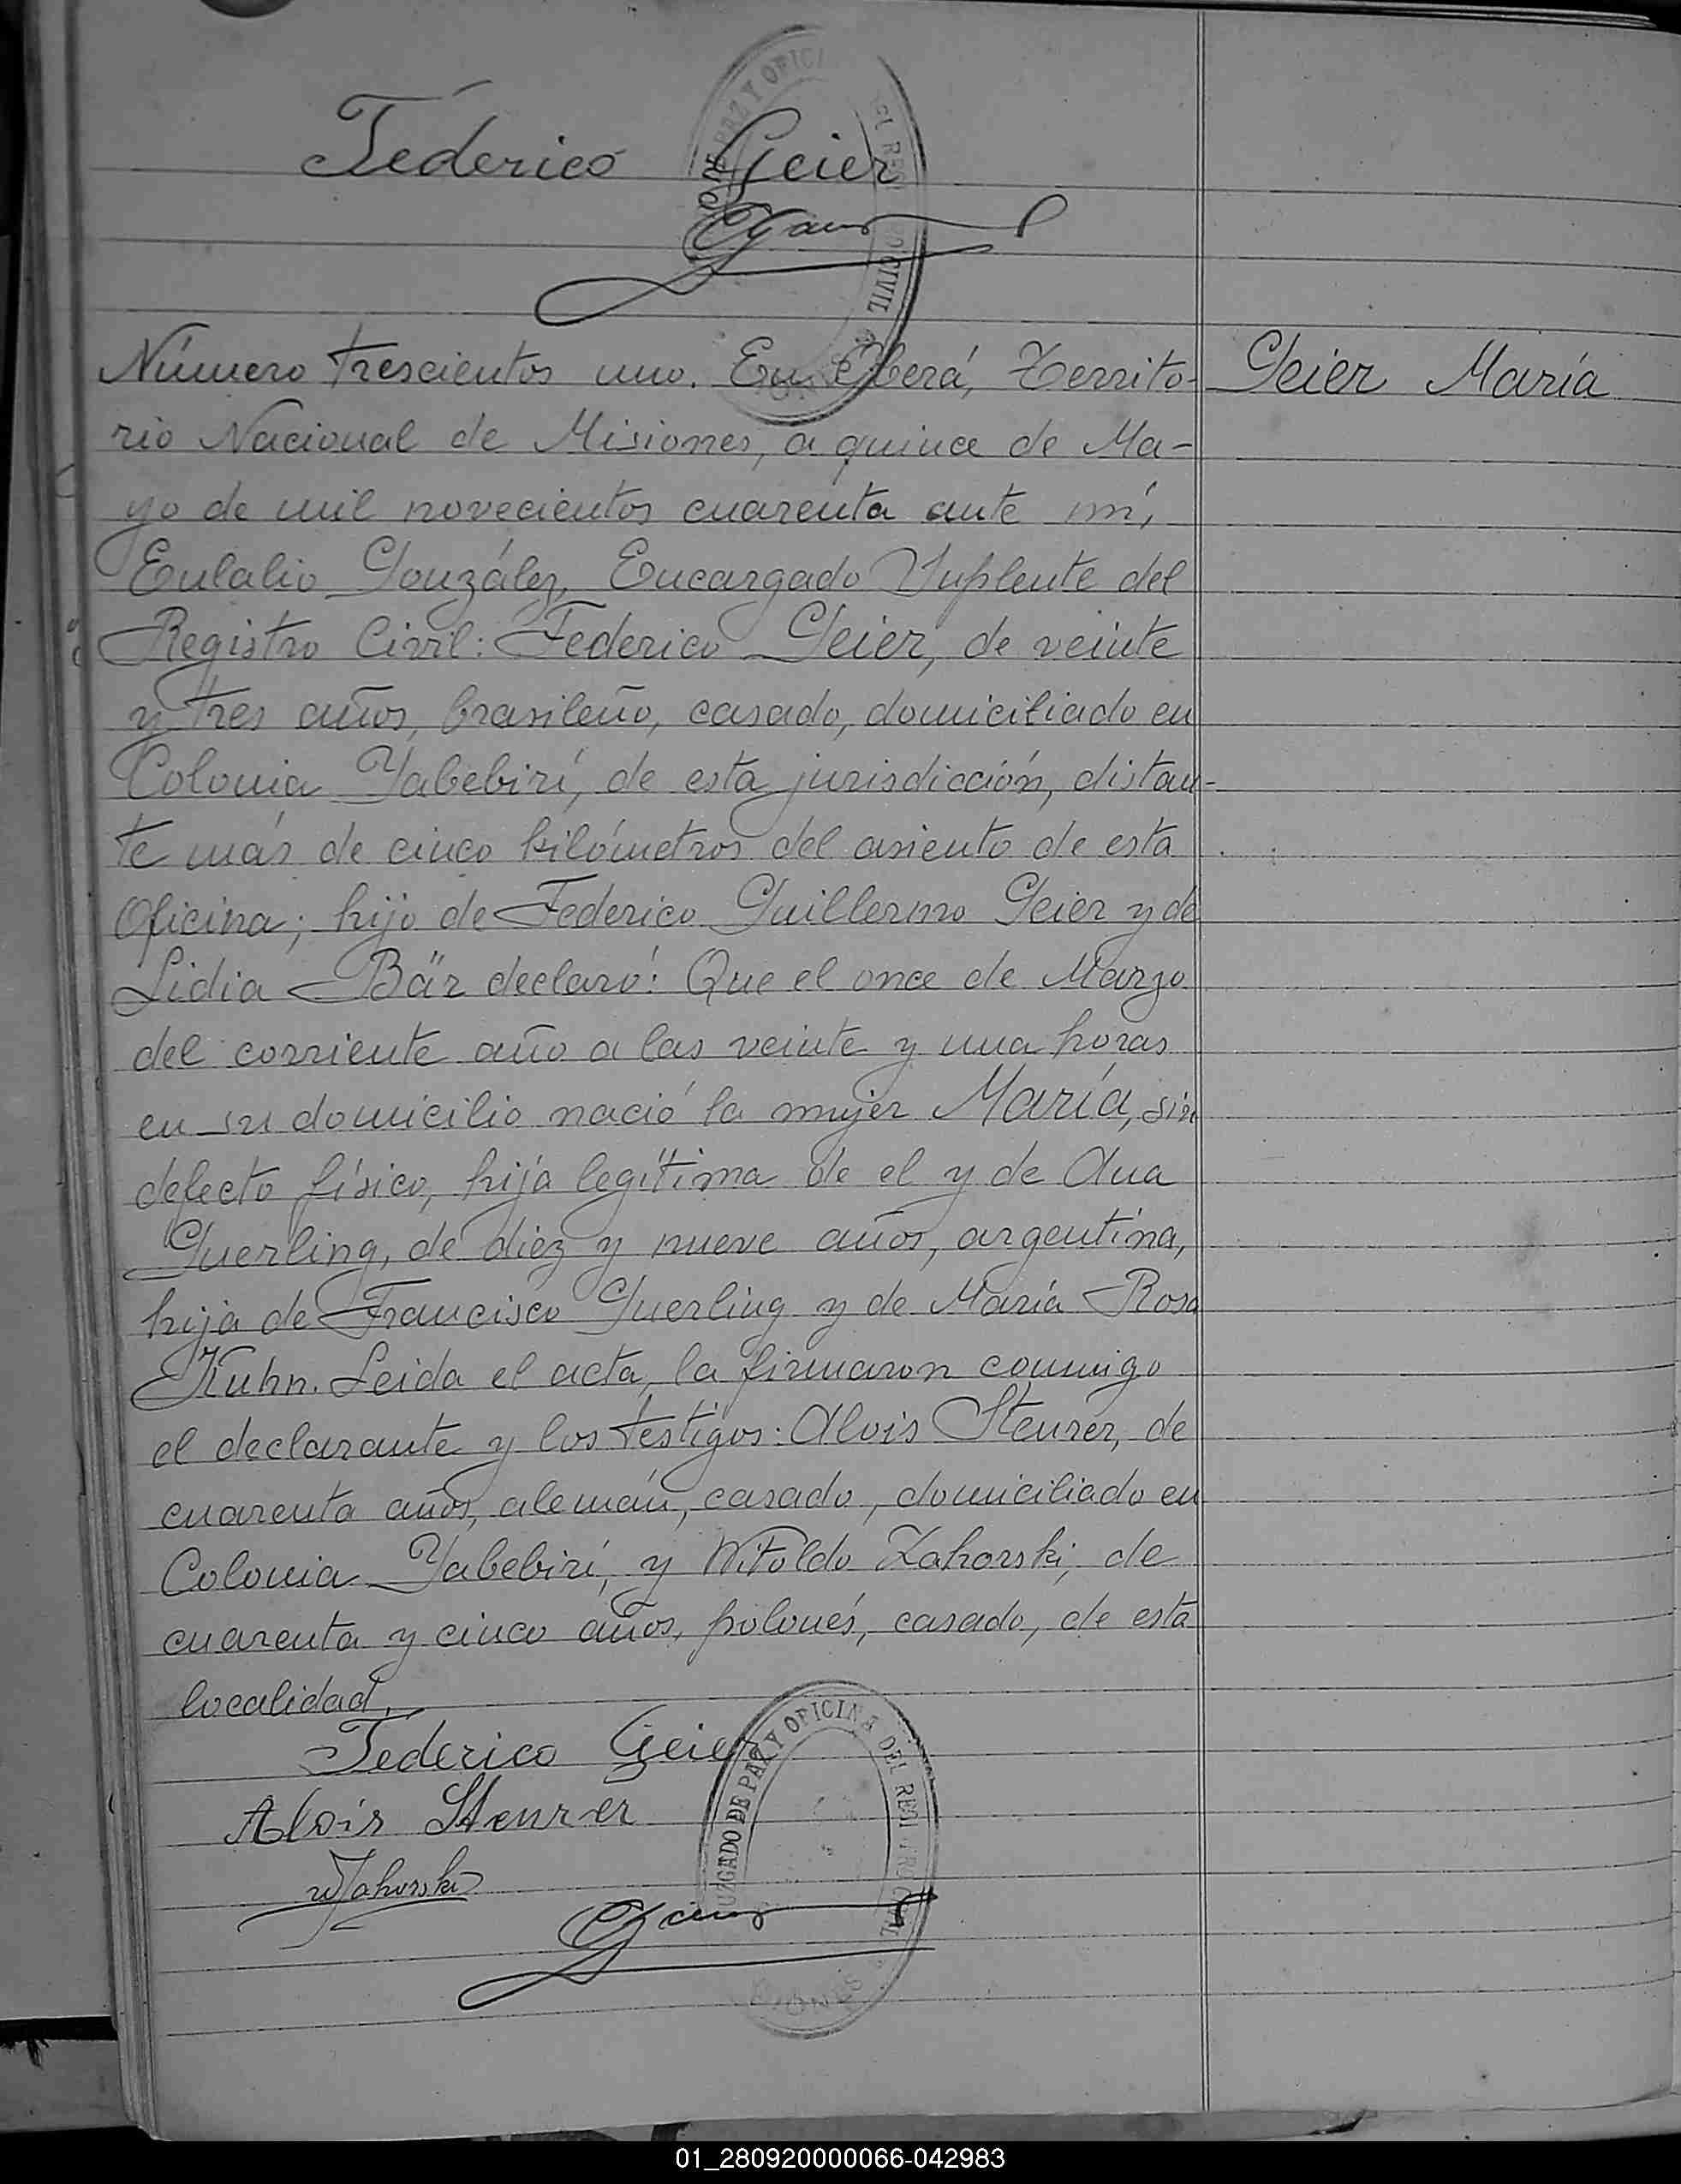 Federico Geier
Número trescientos uno. En Oberá, Territo-
Geier María
rio Nacional de Misiones, a quince de Ma-
yo de mil novecientos cuarenta ante mí,
Eulalio González, Encargado Suplente del
Registro Civil: Federico Geier, de veinte
y tres años, brasileño, casado, domiciliado en
Colonia Yabebirí, de esta jurisdicción, distan-
te más de cinco kilómetros del asiento de esta
Oficina; hijo de Federico Guillermo Geier y de
Lidia Bär declaró: Que el once de Marzo
del corriente año a las veinte y una horas
en su domicilio nació la mujer María, sin
defecto físico, hija legítima de el y de Ana
Guerling, de diez y nueve años, argentina,
hija de Francisco Guerling y de María Rosa
Kuhn. Leida el acta, la firmaron conmigo
el declarante y los testigos: Alois Steurer, de
cuarenta años, alemán, casado, domiciliado en
Colonia Yabebirí, y Witoldo Zahorski, de
cuarenta y cinco años, polonés, casado, de esta
localidad.
Federico Geier
Alois Steurer
JUZGADO DE PAZ Y OFICINA DEL REGISTRO CIVIL
WZahorski
01_280920000066-042983